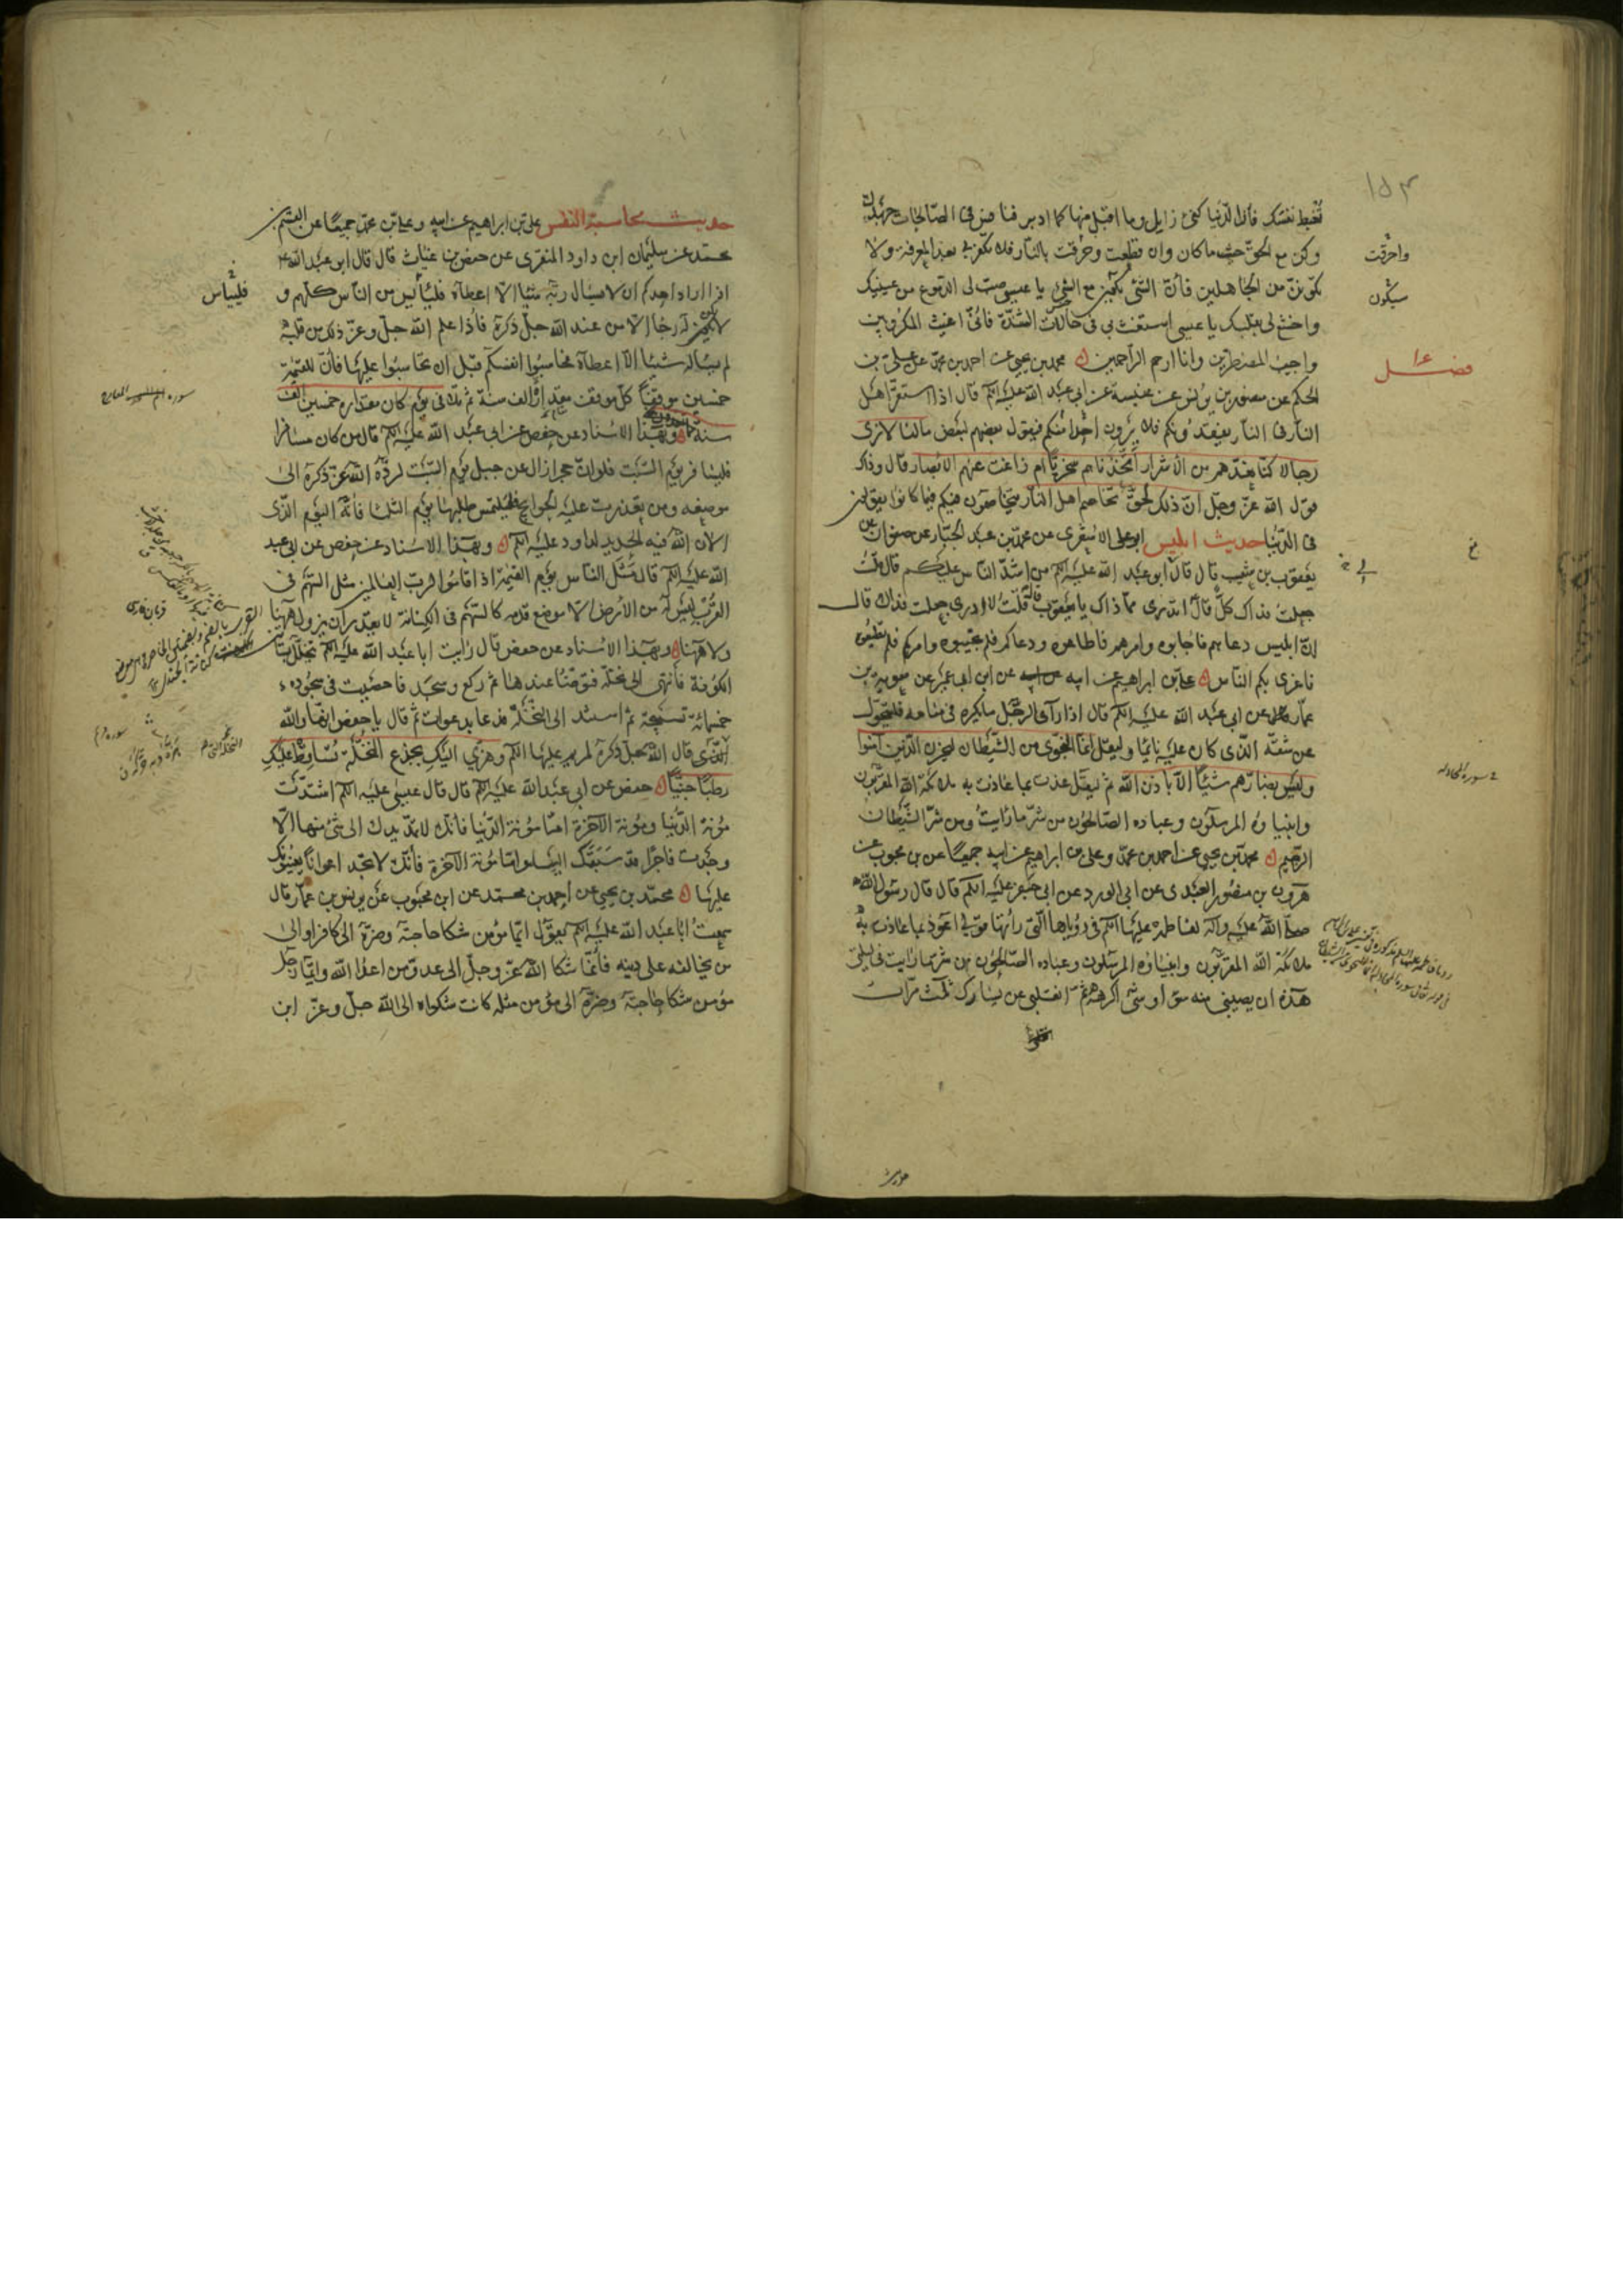 ۱۵۳
تغبط نفسك فان الدنيا كفئ زايل وما اقبل منها كما ادبر فنافس في الصالحات جهدك
وكن مع الحق حيث ما كان وان قطعت وحرقت بالنار فلا تكفر بي بعد المعرفة ولا
تكونن من الجاهلين فان الشئ يكون مع الشئ يا عيسى صب لي الدموع من عينيك
واخشع لي بقلبك يا عيسى استغث بي في حالات الشدة فاني اغيث المكروبين
واجيب المضطرين وانا ارحم الراحمين محمد بن يحيى عن احمد بن محمد عن علي بن
الحكم عن منصور بن يونس عن عنبسة عن ابي عبد الله عليه السلم قال اذا استقر اهل
النار في النار يفقدونكم فلا يرون احدا منكم فيقول بعضهم لبعض ما لنا لا نرى
رجالا كنا نعدهم من الاشرار اتخذناهم سخريا ام زاغت عنهم الابصار قال وذلك
قول الله عز وجل ان ذلك لحق تخاصم اهل النار يتخاصمون فيكم فيما كانوا يقولون
في الدنيا حديث ابليس ابو علي الاشعري عن محمد بن عبد الجبار عن صفوان عن
يعقوب بن شعيب قال قال ابو عبد الله عليه السلم من اشد الناس عليكم قال قلت
جعلت فداك كل قال اتدري مما ذاك يا يعقوب قال قلت لا ادري جعلت فداك قال
ان ابليس دعاهم فاجابوه وامرهم فاطاعوه ودعاكم فلم تجيبوه وامركم فلم تطيعوه
فاغرى بكم الناس علي بن ابراهيم عن ابيه عن ابن ابي عمير عن معوية بن
عمار عن ابي عبد الله عليه السلم قال اذا راى الرجل ما يكره في منامه فليتحول
عن شقه الذي كان عليه نايما وليقل انما النجوى من الشيطان ليحزن الذين آمنوا
وليس بضارهم شيئا الا باذن الله ثم ليقل عذت بما عاذت به ملائكة الله المقربون
وانبياؤه المرسلون وعباده الصالحون من شر ما رايت ومن شر الشيطان
الرجيم محمد بن يحيى عن احمد بن محمد وعلي بن ابراهيم عن ابيه جميعا عن بن محبوب عن
هرون بن منصور العبدي عن ابي الورد عن ابي جعفر عليه السلم قال قال رسول الله
صلى الله عليه واله لفاطمه عليها السلم في رؤياها التي راتها قولي اعوذ بما عاذت به
ملائكة الله المقربون وانبياؤه المرسلون وعباده الصالحون من شر ما رايت في ليلتي
هذه ان يصيبني منه سوء او شئ اكرهه ثم انقلبي عن يسارك ثلث مرات
واحرقت
سيكون
فضل
خ
سورة المجادله
حديث
حديث محاسبة النفس علي بن ابراهيم عن ابيه وعلي بن محمد جميعا عن القسم بن
محمد عن سليمان ابن داود المنقري عن حفص بن غياث قال قال ابو عبد الله
اذا اراد احدكم ان لا يسال ربه شيئا الا اعطاه فليأيس من الناس كلهم و
لا يكون له رجا الا من عند الله جل ذكره فاذا علم الله جل وعز ذلك من قلبه
لم يساله شيئا الا اعطاه فحاسبوا انفسكم قبل ان تحاسبوا عليها فان للقيمة
خمسين موقفا كل موقف مقداره الف سنة ثم تلا في يوم كان مقداره خمسين الف
سنة مما تعدون وبهذا الاسناد عن حفص عن ابي عبد الله عليه السلم قال من كان مسافرا
فليسافر يوم السبت فلو ان حجرا زال عن جبل يوم السبت لرده الله عز ذكره الى
موضعه ومن تعذرت عليه الحوايج فليلتمس طلبها يوم الثلثا فانه اليوم الذي
الان الله فيه الحديد لداود عليه السلم وبهذا الاسناد عن حفص عن ابي عبد
الله عليه السلم قال مثل الناس يوم القيمة اذا قاموا لرب العالمين مثل السهم في
القرب ليس له من الارض الا موضع قدمه كالسهم في الكنانة لا يقدر ان يزول هاهنا
ولا هاهنا وبهذا الاسناد عن حفص قال رايت ابا عبد الله عليه السلم يتخلل بساتين
الكوفة فانتهى الى نخلة فتوضا عندها ثم ركع وسجد فاحصيت في سجوده
خمسمائة تسبيحة ثم استند الى النخلة فدعا بدعوات ثم قال يا حفص انها والله
النخلة التي قال الله جل ذكره لمريم عليها السلم وهزي اليك بجذع النخلة تساقط عليك
رطبا جنيا حفص عن ابي عبد الله عليه السلم قال قال عيسى عليه السلم اشتدت
مؤنة الدنيا ومؤنة الآخرة اما مؤنة الدنيا فانك لا تمد يدك الى شئ منها الا
وجدت فاجرا قد سبقك اليها واما مؤنة الآخرة فانك لا تجد اعوانا يعينونك
عليها محمد بن يحيى عن احمد بن محمد عن ابن محبوب عن يونس بن عمار قال
سمعت ابا عبد الله عليه السلم يقول ايما مؤمن شكا حاجته وضره الى كافر او الى
من يخالفه على دينه فانما شكا الله عز وجل الى عدو من اعدا الله وايما رجل
مؤمن شكا حاجته وضره الى مؤمن مثله كانت شكواه الى الله جل وعز ابن
فلييأس